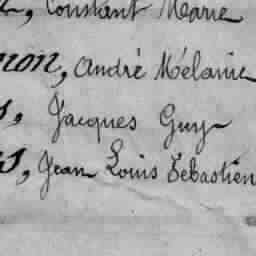 , Constant Marie
non, André Mélanie
s, Jacques Guy
s, Jean Louis Sébastien